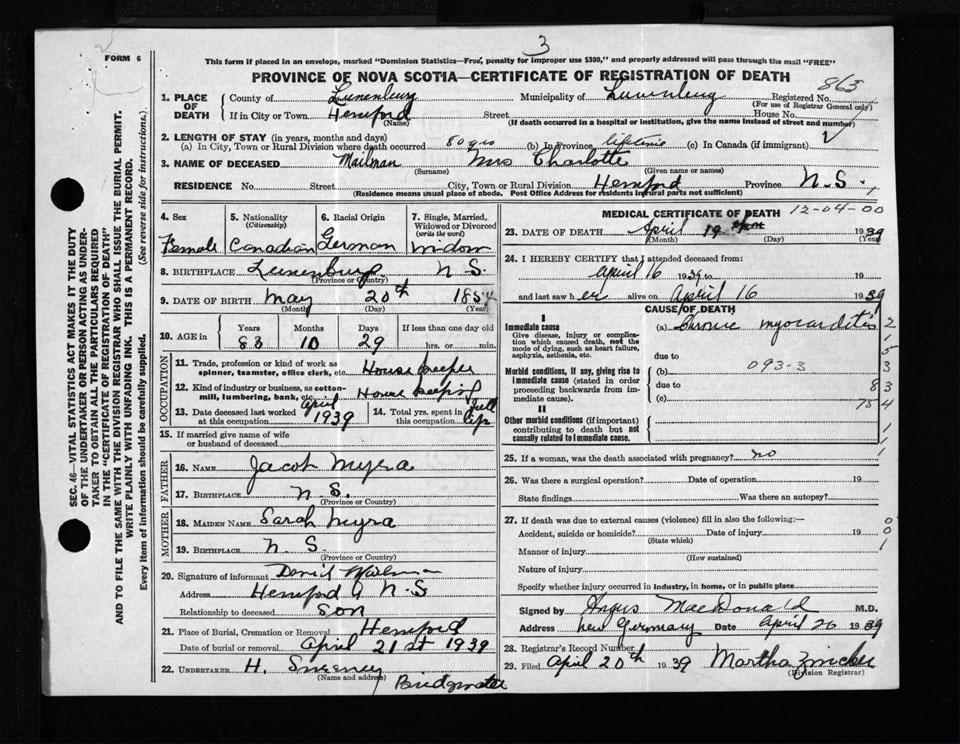 3
FORM 6
This form if placed in an envelope, marked "Dominion Statistics—Free, penalty for improper use $300," and properly addressed will pass through the mail "FREE"
PROVINCE OF NOVA SCOTIA—CERTIFICATE OF REGISTRATION OF DEATH
863
1. PLACE OF DEATH County of Lunenburg Municipality of Lunenburg Registered No.
(For use of Registrar General only)
If in City or Town Hemford Street House No.
(Name) (If death occurred in a hospital or institution, give the name instead of street and number)
2. LENGTH OF STAY (in years, months and days)
(a) In City, Town or Rural Division where death occurred 80 yrs (b) In Province lifetime (c) In Canada (if immigrant)
3. NAME OF DECEASED Mailman Mrs Charlotte
(Surname) (Given name or names)
RESIDENCE No. Street City, Town or Rural Division Hemford Province N.S.
(Residence means usual place of abode. Post Office Address for residents in rural parts not sufficient)
4. Sex 5. Nationality (Citizenship) 6. Racial Origin 7. Single, Married, Widowed or Divorced (write the word)
Female Canadian German widow
8. BIRTHPLACE Lunenburg N.S.
(Province or Country)
9. DATE OF BIRTH May 20th 1854
(Month) (Day) (Year)
10. AGE in Years Months Days If less than one day old
83 10 29 hrs. or min.
OCCUPATION
11. Trade, profession or kind of work as spinner, teamster, office clerk, etc. House keeper
12. Kind of industry or business, as cotton-mill, lumbering, bank, etc. House keeping
13. Date deceased last worked at this occupation April 1939
14. Total yrs. spent in this occupation full life
15. If married give name of wife or husband of deceased
FATHER
16. NAME Jacob Myra
17. BIRTHPLACE N.S.
(Province or Country)
MOTHER
18. MAIDEN NAME Sarah Myra
19. BIRTHPLACE N.S.
(Province or Country)
20. Signature of informant David Mailman
Address Hemford N.S
Relationship to deceased Son
21. Place of Burial, Cremation or Removal Hemford
Date of burial or removal April 21st 1939
22. UNDERTAKER H. Sweeney
(Name and address) Bridgewater
MEDICAL CERTIFICATE OF DEATH
12-04-00
23. DATE OF DEATH April 19 1939
(Month) (Day) (Year)
24. I HEREBY CERTIFY that I attended deceased from:
April 16 1939 to 19
and last saw her alive on April 16 1939
CAUSE OF DEATH
I
Immediate cause
Give disease, injury or complication which caused death, not the mode of dying, such as heart failure, asphyxia, asthenia, etc.
(a) Chronic myocarditis
due to
Morbid conditions, if any, giving rise to immediate cause (stated in order proceeding backwards from immediate cause).
(b) 093-3
due to
(c)
II
Other morbid conditions (if important) contributing to death but not causally related to immediate cause.
2
1
5
3
83
784
1
1
1
25. If a woman, was the death associated with pregnancy? no
26. Was there a surgical operation? Date of operation 19
State findings Was there an autopsy?
27. If death was due to external causes (violence) fill in also the following:—
Accident, suicide or homicide? Date of injury 19
(State which)
Manner of injury
(How sustained)
Nature of injury
0
0
1
Specify whether injury occurred in industry, in home, or in public place
Signed by Angus MacDonald M.D.
Address New Germany Date April 20 1939
28. Registrar's Record Number
29. Filed April 20th 1939 Martha Zwicker
(Division Registrar)
SEC. 46—VITAL STATISTICS ACT MAKES IT THE DUTY OF THE UNDERTAKER OR PERSON ACTING AS UNDERTAKER TO OBTAIN ALL THE PARTICULARS REQUIRED IN THE "CERTIFICATE OF REGISTRATION OF DEATH"
AND TO FILE THE SAME WITH THE DIVISION REGISTRAR WHO SHALL ISSUE THE BURIAL PERMIT.
WRITE PLAINLY WITH UNFADING INK. THIS IS A PERMANENT RECORD.
Every item of information should be carefully supplied. (See reverse side for instructions.)